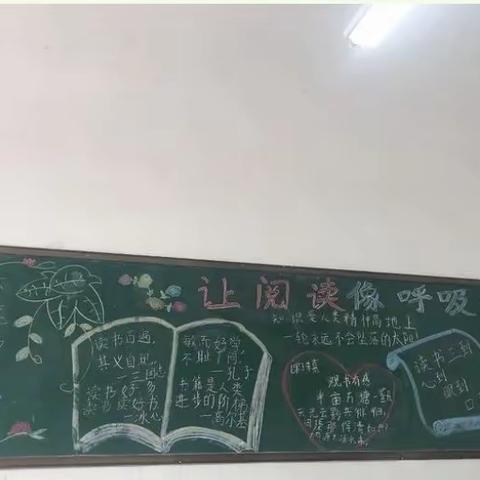 让阅读像呼吸
知识是人类精神高地上
一轮永远不会坠落的太阳
读书百遍，
其义自见。
—三国志
读书好，多
读书，
好书
—冰心
敏而好学，
不耻下问
—孔子
书籍是人类
进步的阶梯
—高尔基
朱熹
观书有感
半亩方塘一鉴
天光云影共徘徊
读书三到
心到
眼到
口